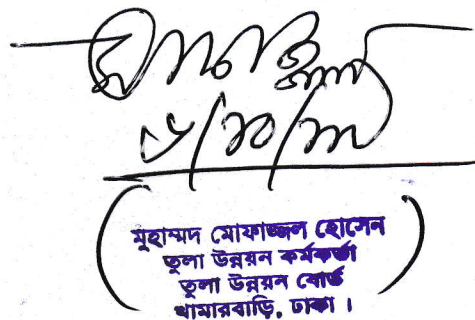 মুহাম্মদ মোফাজ্জল হোসেন
তুলা উন্নয়ন কর্মকর্তা
তুলা উন্নয়ন বোর্ড
খামারবাড়ি, ঢাকা।